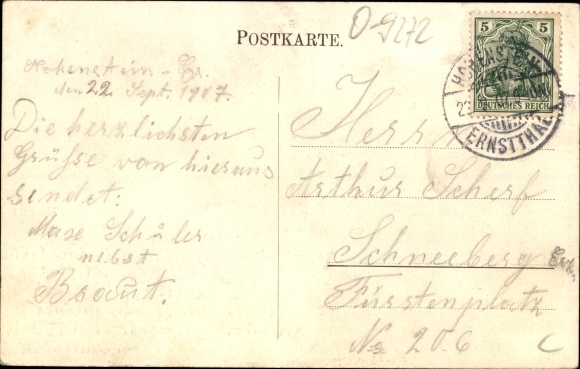 O-9272
POSTKARTE.
5 5
DEUTSCHES REICH
HOHENSTEIN
ERNSTTHAL
Hohenstein-Er.
den 22. Sept. 1907.
Die herzlichsten
Grüsse von hieraus
sendet:
Max Schüler
nebst
Braut.
Herrn
Arthur Scherf
Schneeberg
Fürstenplatz
No 206